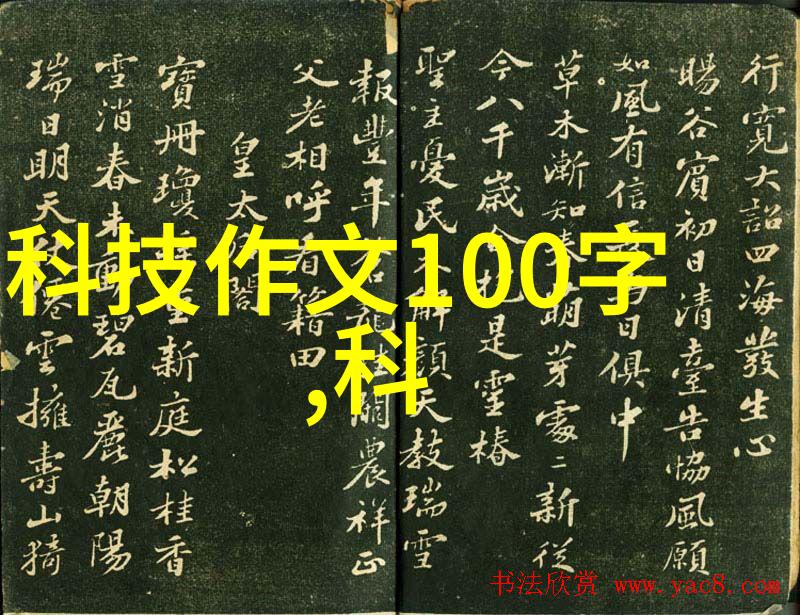 行寬大詔四海發生心
暘谷賓初日清臺告協風願
如風有信長與日俱中
草木漸知春萌芽處〻新從
今八千歲合抱是靈椿
聖主憂民不解顏天教瑞雪
報豐年農祥正
父老相呼看籍田
皇太后閣
寶冊瓊新庭松桂香
雪消春未動碧瓦麗朝陽
瑞日明天雲擁壽山猗
科技作文100字
,科
书法欣赏 www.yac8.com